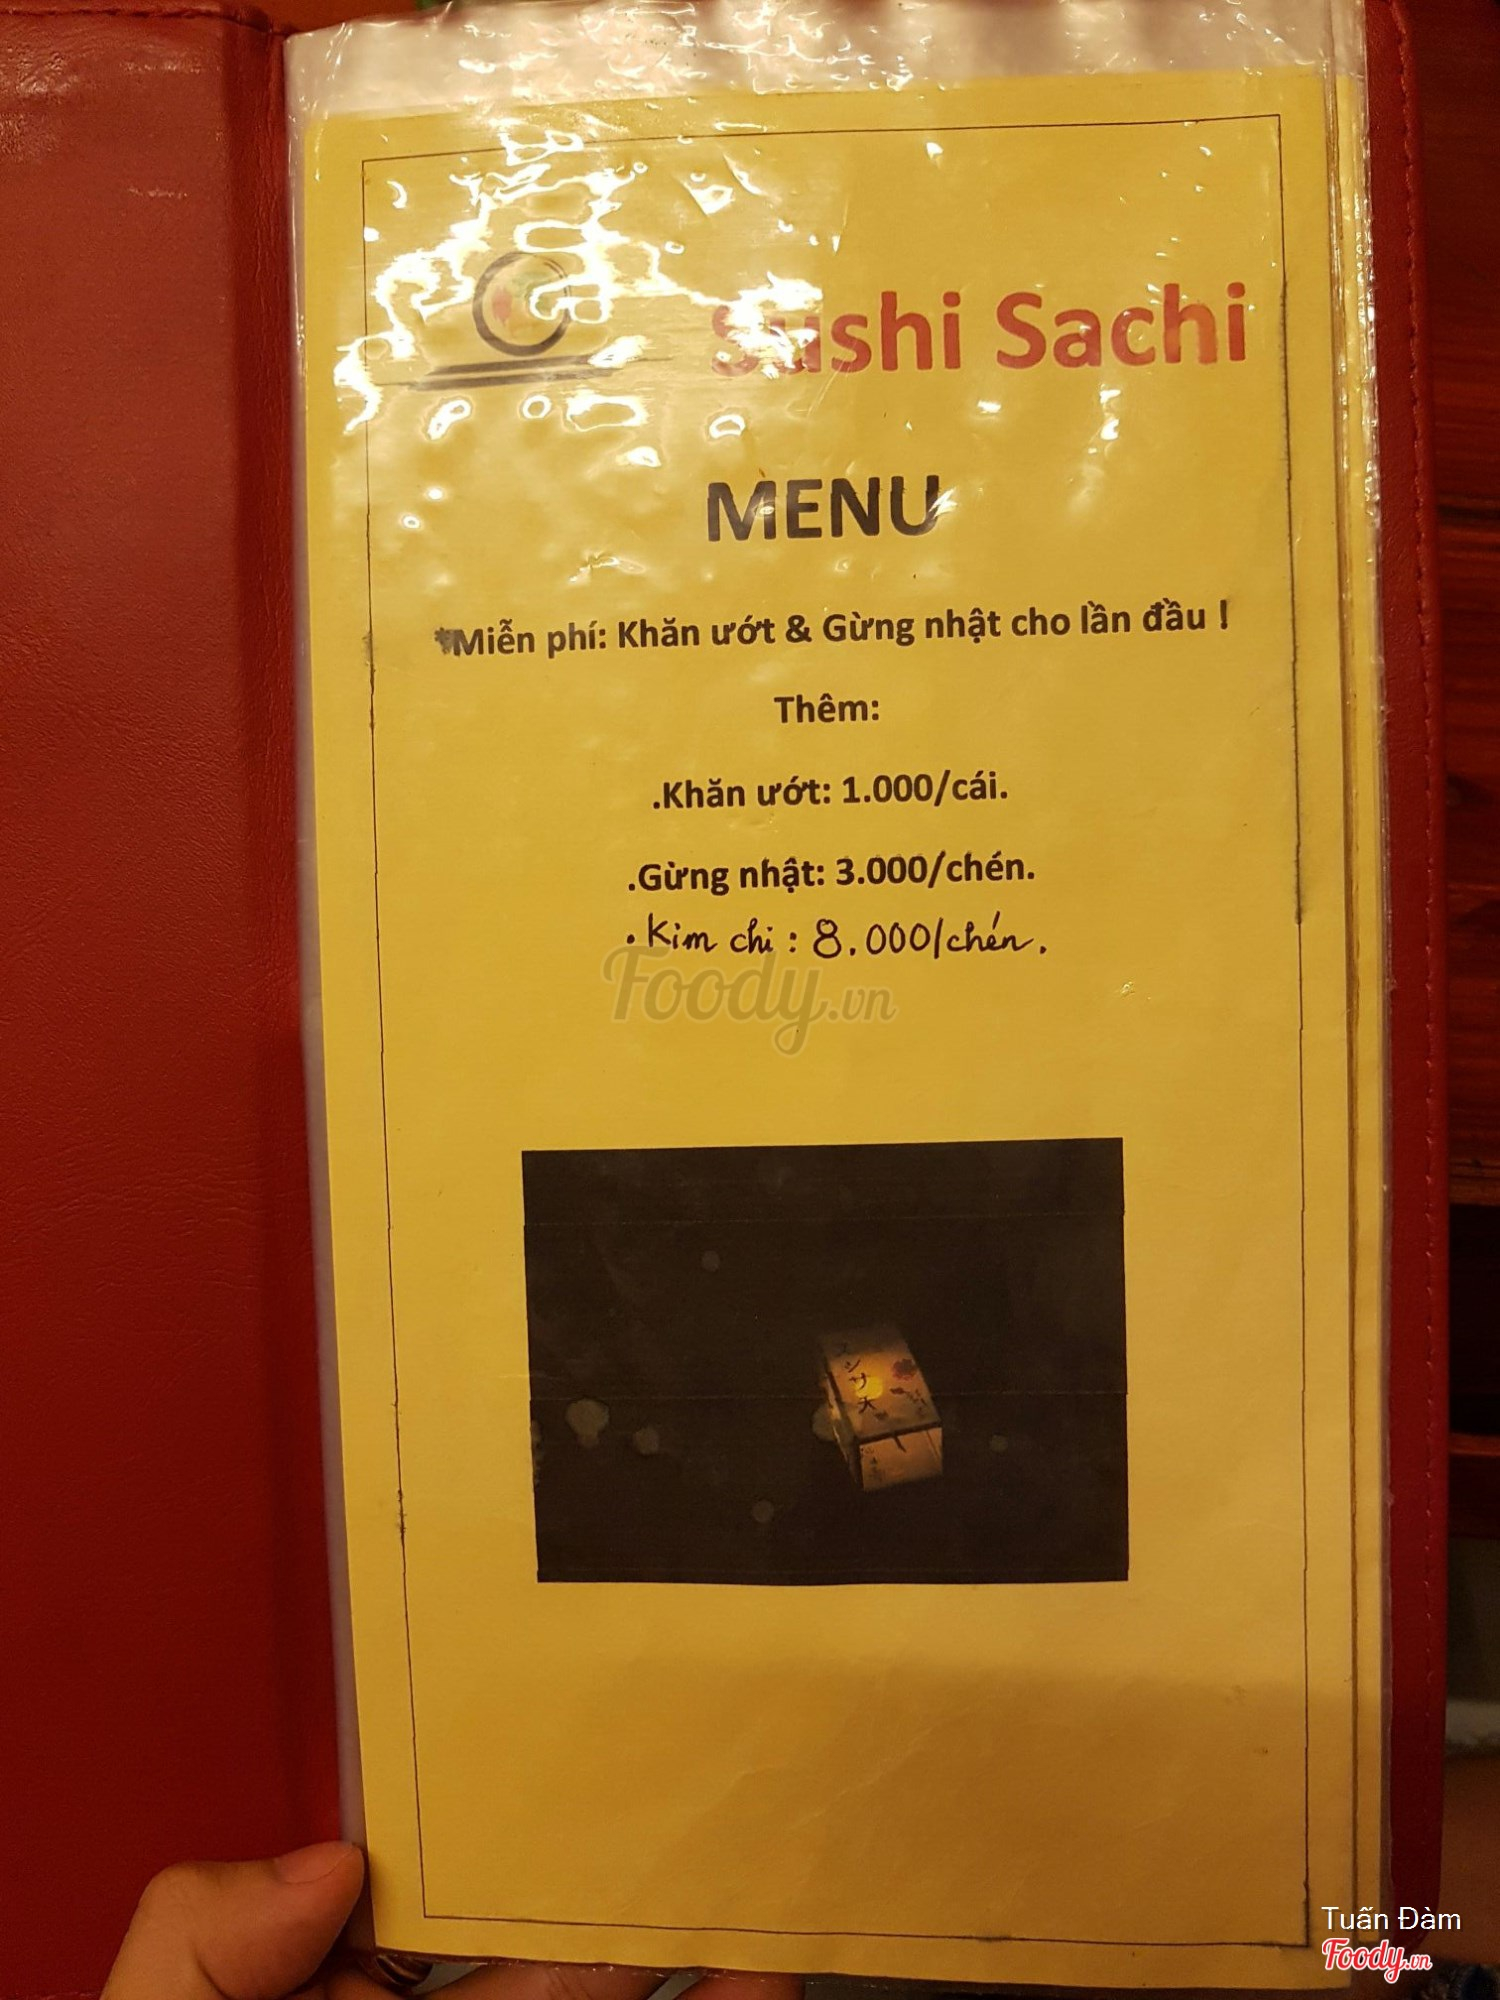 Sushi Sachi
MENU
*Miễn phí: Khăn ướt & Gừng nhật cho lần đầu !
Thêm:
.Khăn ướt: 1.000/cái.
.Gừng nhật: 3.000/chén.
. Kim chi : 8.000/chén.
Foody.vn
スシサチ
Tuấn Đàm
Foody.vn